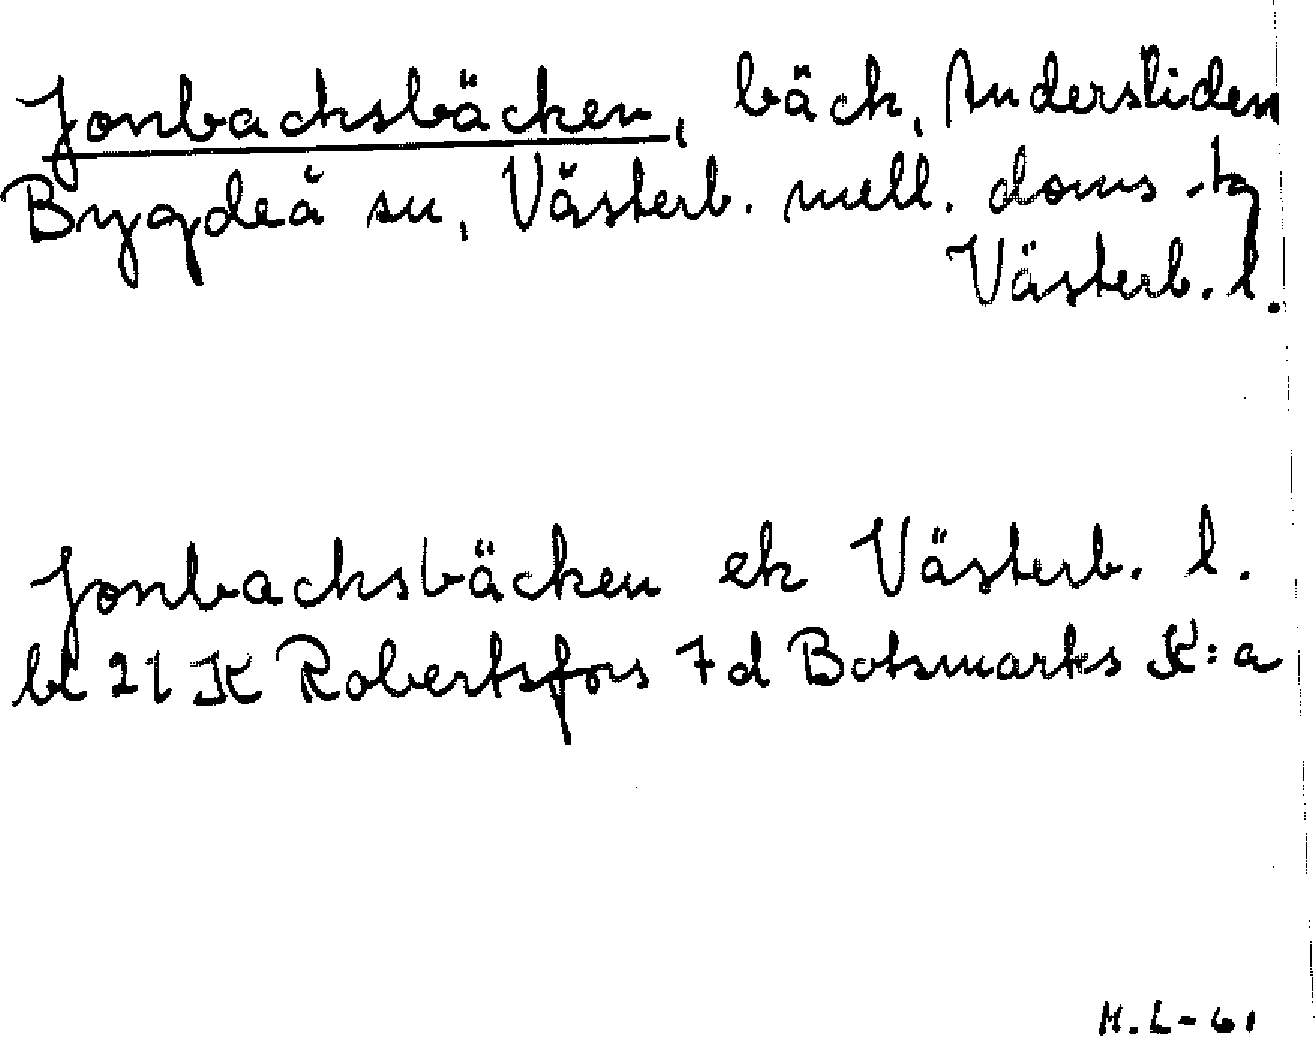 Jonbacksbäcken, bäck, Andersliden
Bygdeå sn, Västerb. mell. doms tg
Västerb. l.
Jonbacksbäcken ek Västerb. l.
bl 21 K Robertsfors 7d Botsmarks K:a
M. L-61